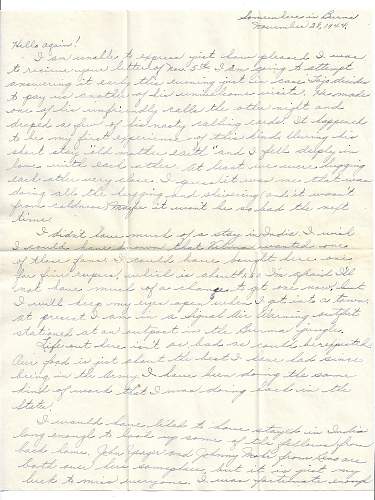 Somewhere in Burma
November 28, 1944.
Hello again!
I am unable to express just how pleased I was
to receive your letter of Nov. 5th. I am going to attempt
answering it early this evening just in case Tojo decides
to pay us another of his unwelcome visits. He made
one of his unfriendly calls the other night and
droped a few of his nasty calling cards. It happened
to be my first experience of this kind. During his
short stay "old mother earth" and I fell deeply in
love with each other. At least we were hugging
each other very close. I guess it was me that was
doing all the hugging and shivering and it wasn't
from coldness. Maybe it won't be so bad the next
time.
I didn't have much of a stay in India. I wish
I would have known that Velma wanted one
of those fans. I could have bought here one
for five rupees, which is about $1.50. I'm afraid I'll
not have much of a chance to get one now, but
I will keep my eyes open when I get into a town.
at present I am in a Signal Air Warning outfit
stationed at an outpost in the Burma jungle.
Life out here isn't as bad as could be expected.
Our food is just about the best I have had since
being in the Army. I have been doing the same
kind of work that I was doing back in the
States.
I would have liked to have stayed in India
long enough to look up some of the fellows from
back home. John and Johnny from are
both over here someplace, but it is just my
luck to miss everyone. I was fortunate enough